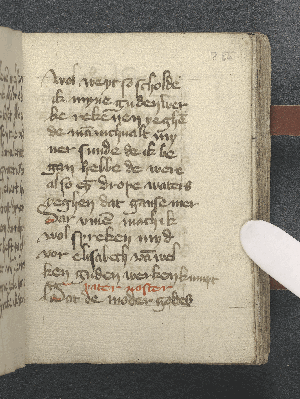 wol weyt so scholde
ik myne guden wer
ke rekenen yeghē
de mānichualt myⁿ
ner sunde de ik be
gan hebbe de were
also eȳ drope waters
yeghen dat ganse mer
Dar vme mach ik
wol spreken myd
vor elisabeth vā wol
ken guden werken kumpt
pater noster
Dat de moder godes